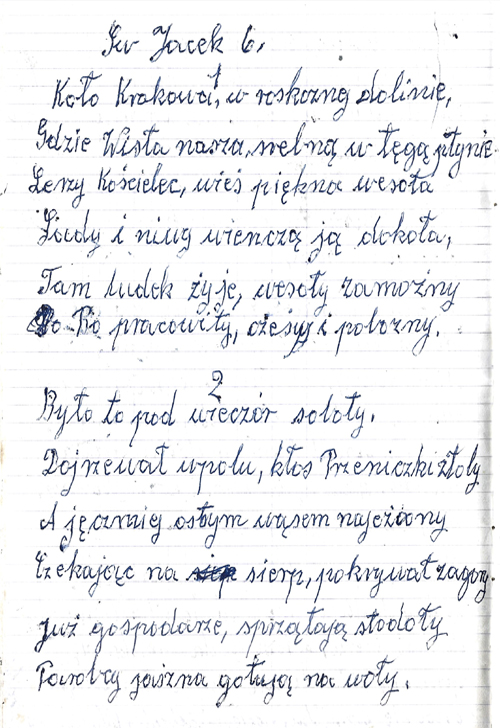 Św Jacek 6.
1
Koło Krakowa, w roskozną dolinie,
Gdzie Wisła nasza, welną w tęgą płynie.
Leszy Kościelec, wieś piękna wesoła
Sady i niwy wienczą ją dokoła,
Tam ludek żyje, wesoły zamożny
Bo pracowity, i pobozny.
2
Było to pod wieczór soboty.
Dojrzewał wpolu, kłos Przeniczki złoty
A jęczmię ostym wąsem najeżony
Czekając na sierp, pokrywał zagony.
Już gospodarze, sprzątają stodoły
Parobcy jaszna gotują na woły.